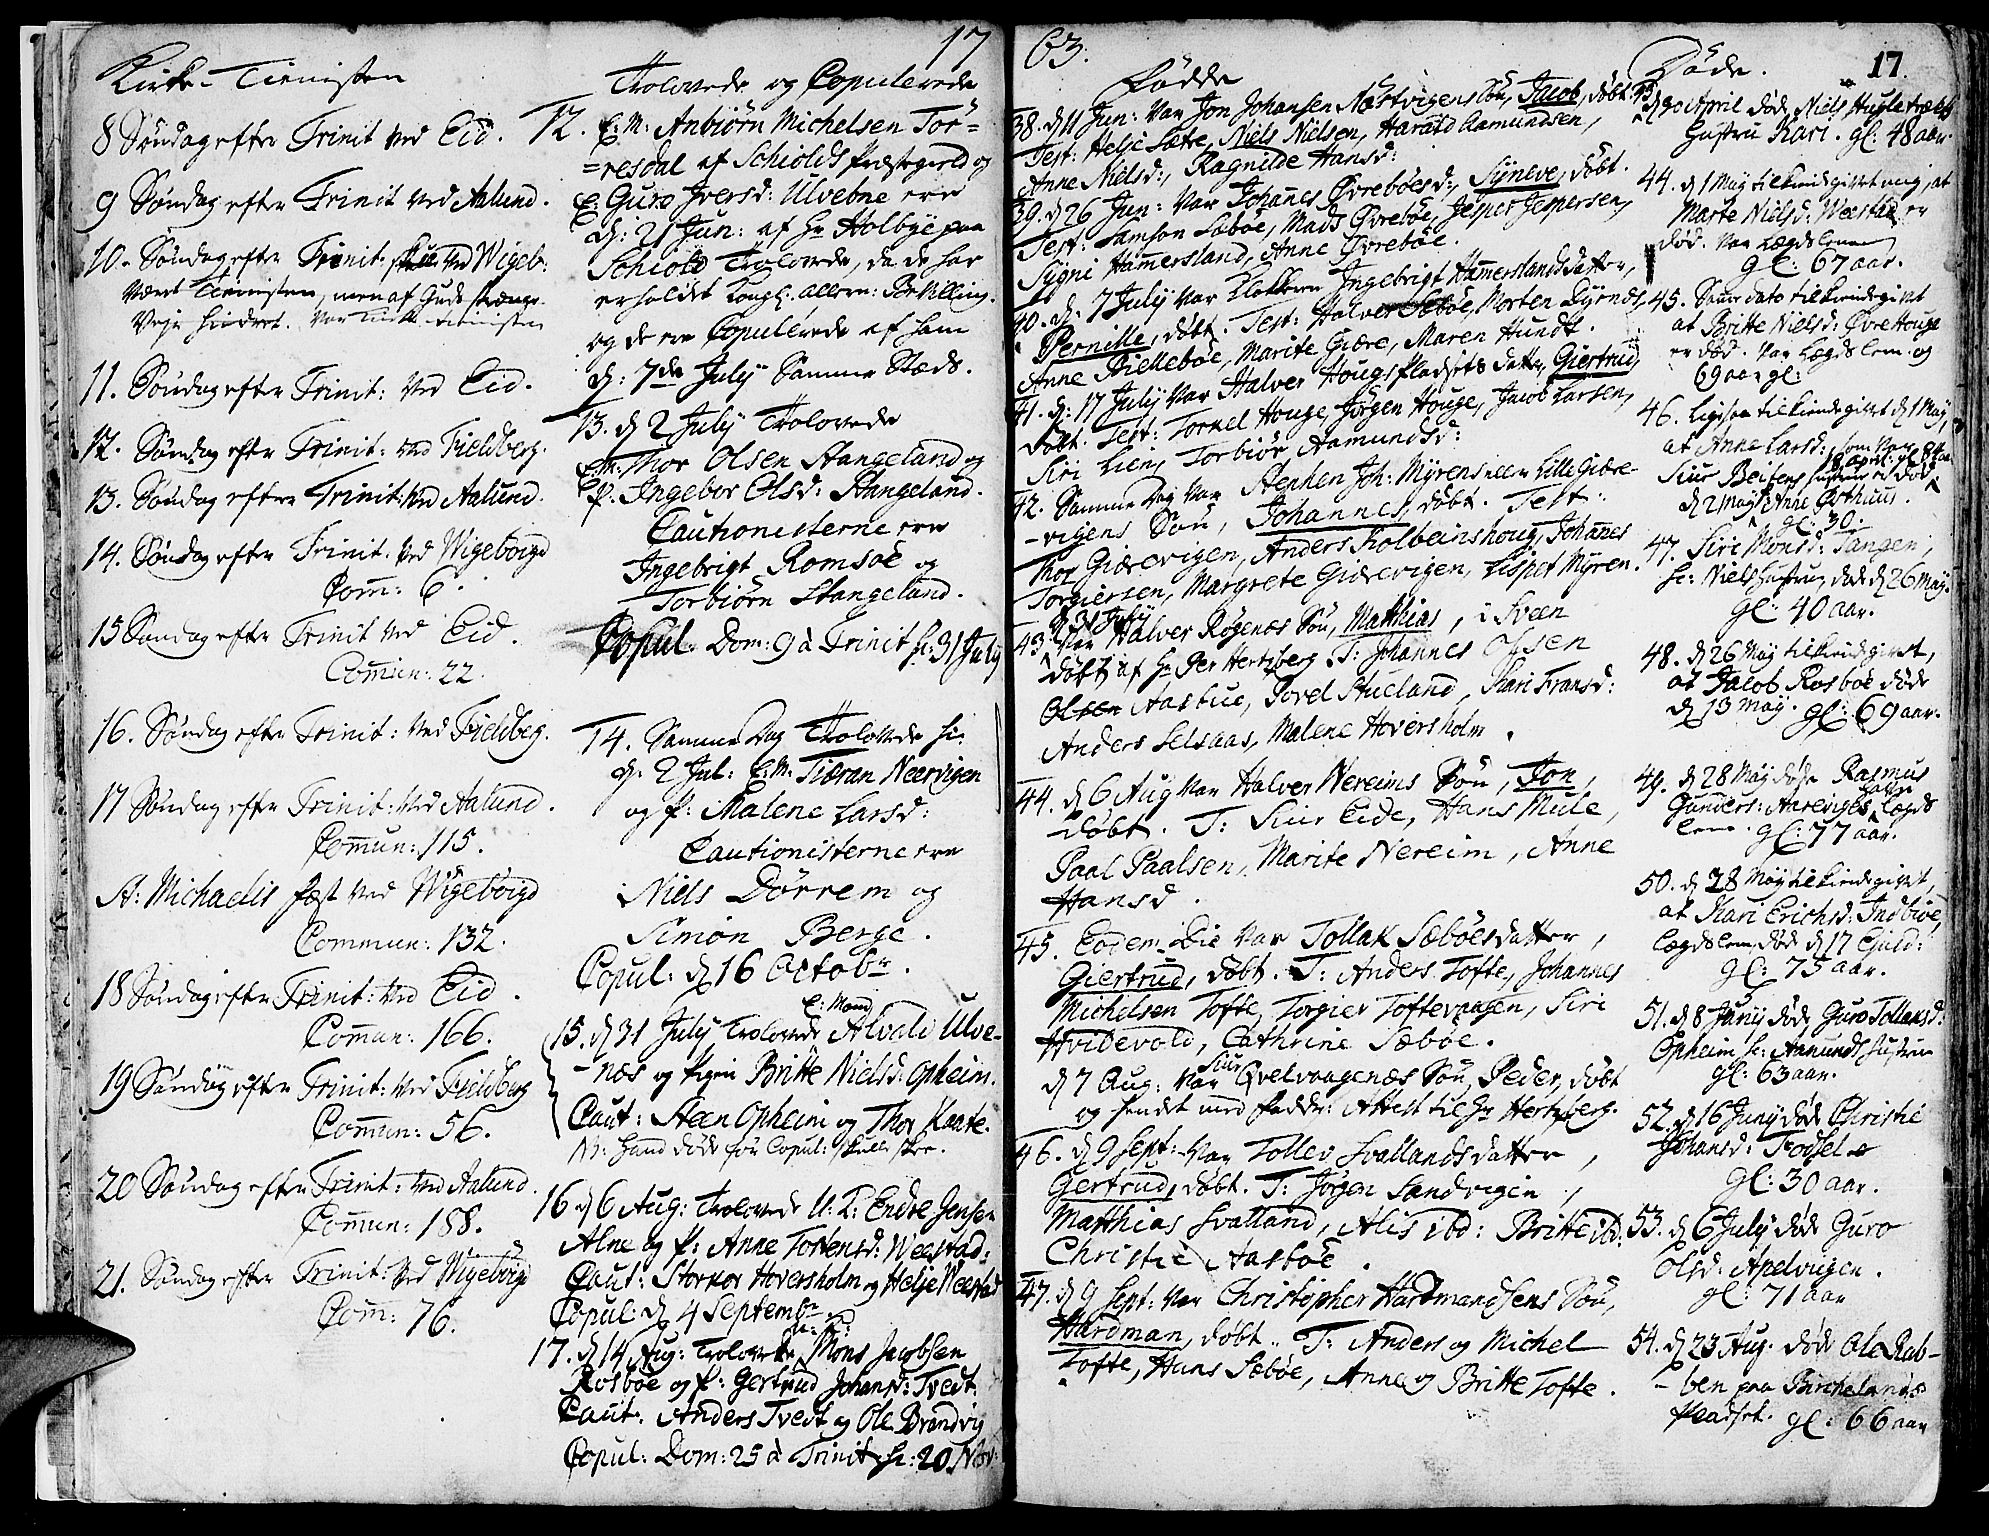 17
Kirke-Tienisten
8 Søndag efter Trinit ved Eid.
9 Søndag efter Trinit ved Aalund.
10. Søndag efter Trinit: ved Wigeb:
Været Tienisten, men af Guds
Vejr hindret.
11. Søndag efter Trinit: ved Eid.
12. Søndag efter Trinit: ved Fieldberg.
13. Søndag efter Trinit: ved Aalund.
14. Søndag efter Trinit. ved Wigeboigd
Com̄: 6.
15 Søndag efter Trinit ved Eid.
Com̄un: 22.
16. Søndag efter Trinit: ved Fieldbeg.
17 Søndag efter Trinit: ved Aalund.
Com̄un: 115.
A: Michaelis fest ved Wigeboigd
Commun: 132.
18 Søndag efter Trinit: ved Eid.
Com̄un: 166.
19 Søndag efter Trinit: ved Fieldberg
Com̄un: 56.
20 Søndag efter Trinit: ved Aalund.
Com̄un: 188.
21. Søndag efter Trinit: ved Wigeboigd
Com̄: 76.
Trolovede og Copulerede
12. E: M: Anbiørn Michelsen Tor=
=resdal af Schiolds Præstegield og
E: Guro Iversd: Ulvebne ere
d: 21 Jun: af Hr Holbye paa
Schiold Trolovede, da de har
erholdet Kongl: allern: Bevilling.
og de ere Copulerede af ham
d: 7de July Samme Stæds.
13. d 2 July Trolovede
E: M: Thor Olsen Stangeland og
P. Ingebor Olsd: Stangeland.
Cautionisterne ere
Ingebrigt Romsøe og
Torbiørn Stangeland.
Copul. Dom: 9 à Trinit h: 31 July
14. Samme Dag Trolovede h:
d: 2 Jul: E: M. Tiæran Neervigen
og P: Malene Larsd:
Cautionisterne ere
Niels Dørrem og
Simon Berge.
Copul: d 16 Octobr.
E: Mand
15. d 31 July Trolovede Alvald Ulve-
-næs og Pigen Britte Nielsd: Opheim.
Caut: Steen Opheim og Thor Kaate.
NB: hand døde før Copul: skulle skee.
16 d 6 Aug: Trolovede U: K: Endre Jensen
Alne og P: Anne Tostensd: Weestad:
Caut: Storkor Hoversholm og Helje Weestad
Copul: d 4 Septembr
17. d 14 Aug: Trolovede Mons Jacobsen
Rosbøe og P: Gertrud Johansd: Tvedt.
Caut: Anders Tvedt og Ole Brandvig
Copul: Dom: 25 à Trinit h: 20 Nov:
63.
Fødde
38. d 11 Jun: var Jon Johansen Næstvigens Søn, Jacob, døbt.
Test: Helje Sætre, Niels Nielsen, Harald Aamundsen,
Anne Nielsd:, Ragnilde Hansd:
39. d 26 Jun: var Johannes Øvrebøesd:, Syneve, døbt.
Test: Samson Sæbøe, Mads Øvrebøe, Jesper Jespersen,
Sygni Hamersland, Anne Øvrebøe.
40. d: 7 July var Klokkeren Ingebrigt Hamerslands datter,
Pernille, døbt. Test: Halver Sæbøe, Morten
Anne Bielkebøe, Marite Giøre, Maren Hundt.
41. d: 17 July var Halver Hougs Pladsets datter, Giertrud,
døbt. Test: Torkel Houge, Jørgen Houge, Jacob Larsen,
Siri Lien, Torbiør Aamundsd:
42. Samme Dag var Stephen Joh: Myrens eller Lille Giøre-
-vigens Søn, Johannes, døbt. Test:
Thor Giørevigen, Anders Kolbeinshoug, Johannes
Torgiersen, Margrete Giørevigen, Lispet Myren.
July
43. var Halver Røgenæs Søn, Matthias, i Sveen
døbt af Hr Per Hertzberg T: Johannes Olsen
Olsen Aasbue, Povel Stueland, Kari Fransd:
Anders Selsaas, Malene Hoversholm.
44. d 6 Aug var Halver Nereims Søn, Jon,
døbt. T: Siur Eide, Hans Mule,
Paal Paalsen, Marite Nereim, Anne
Hansd.
45. Eodem Die var Tollak Sæbøes datter,
Giertrud, døbt. T: Anders Tofte, Johannes
Michelsen Tofte, Torgier Toftevaagen, Siri
Hvidevold, Cathrine Sæbøe.
d 7 Aug: var Siur Qvelvaagenæs Søn, Peder, døbt
og sendet med fadder: Attest til Hr Hertzberg.
46. d 9 Sept: var Tollev Svallands datter,
Gertrud, døbt. T: Jørgen Sandvigen,
Matthias Svalland, Alis ibd: Britte ibd:
Christie Aasbøe.
47. d 9 Sept: var Christopher Hardmandsens Søn,
Hardman, døbt. T: Anders og Michel
Tofte, Hans Sæbøe, Anne og Britte Tofte.
Døde.
17.
43. d 30 April døde Niels Hugletræets
Hustru Kari. gl: 48 aar.
44. d 1 May tilkiendegivet mig, at
Marte Nielsd: Weestad er
død. var Lægds lem
gl: 67 aar.
45. Same dato tilkiendegivet
at Britte Nielsd: Øvre Houge
er død. var Lægds lem og
69 aar gl:
46. Ligesaa tilkiendegivet d 1 May,
at Anne Larsd: som var
Siur Hustru er død
d 2 May Anne Østhuus.
gl: 30.
47. Siri Monsd: Tangen,
h: Niels Hustru, døde d 26 May.
gl: 40 aar.
48. d 26 May tilkiendegivet,
at Jacob Rosbøe døde
d 13 May. gl: 69 aar.
49. d 28 May døde Rasmus
Gunders: Aarevigen Lægds
lem. gl: 77 aar.
50. d 28 May tilkiendegivet,
at Kari Erichsd: Indbiøe,
Lægds lem, døde d 17 Ejusd:
gl: 75 aar.
51. d 8 Juny døde Guro Tollaksd:
Opheim h: Aamunds Hustrue
gl: 63 aar.
52. d 16 Juny døde Christie
Johansd: Fodsel
gl: 30 aar.
53. d 6 July døde Guro
Olsd: Apelvigen.
gl: 71 aar
54. d 23 Aug. døde Ole Rub-
-ben paa Birchelands
Pladset. gl: 66 aar